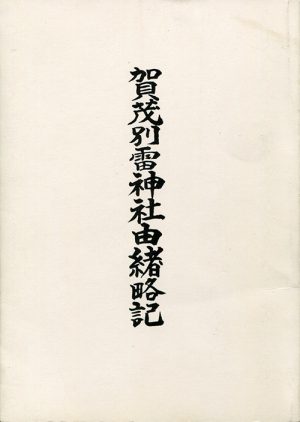 賀茂別雷神社由緒略記